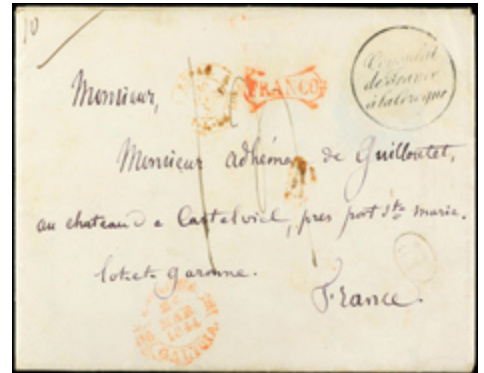 10
Consulat
de France
à la Corogne
FRANCO
Monsieur,
Monsieur Adhémar de Guilloutet,
au chateau de Castelviel, près port Ste marie.
lot et Garonne.
France.
MAR
GALICIA